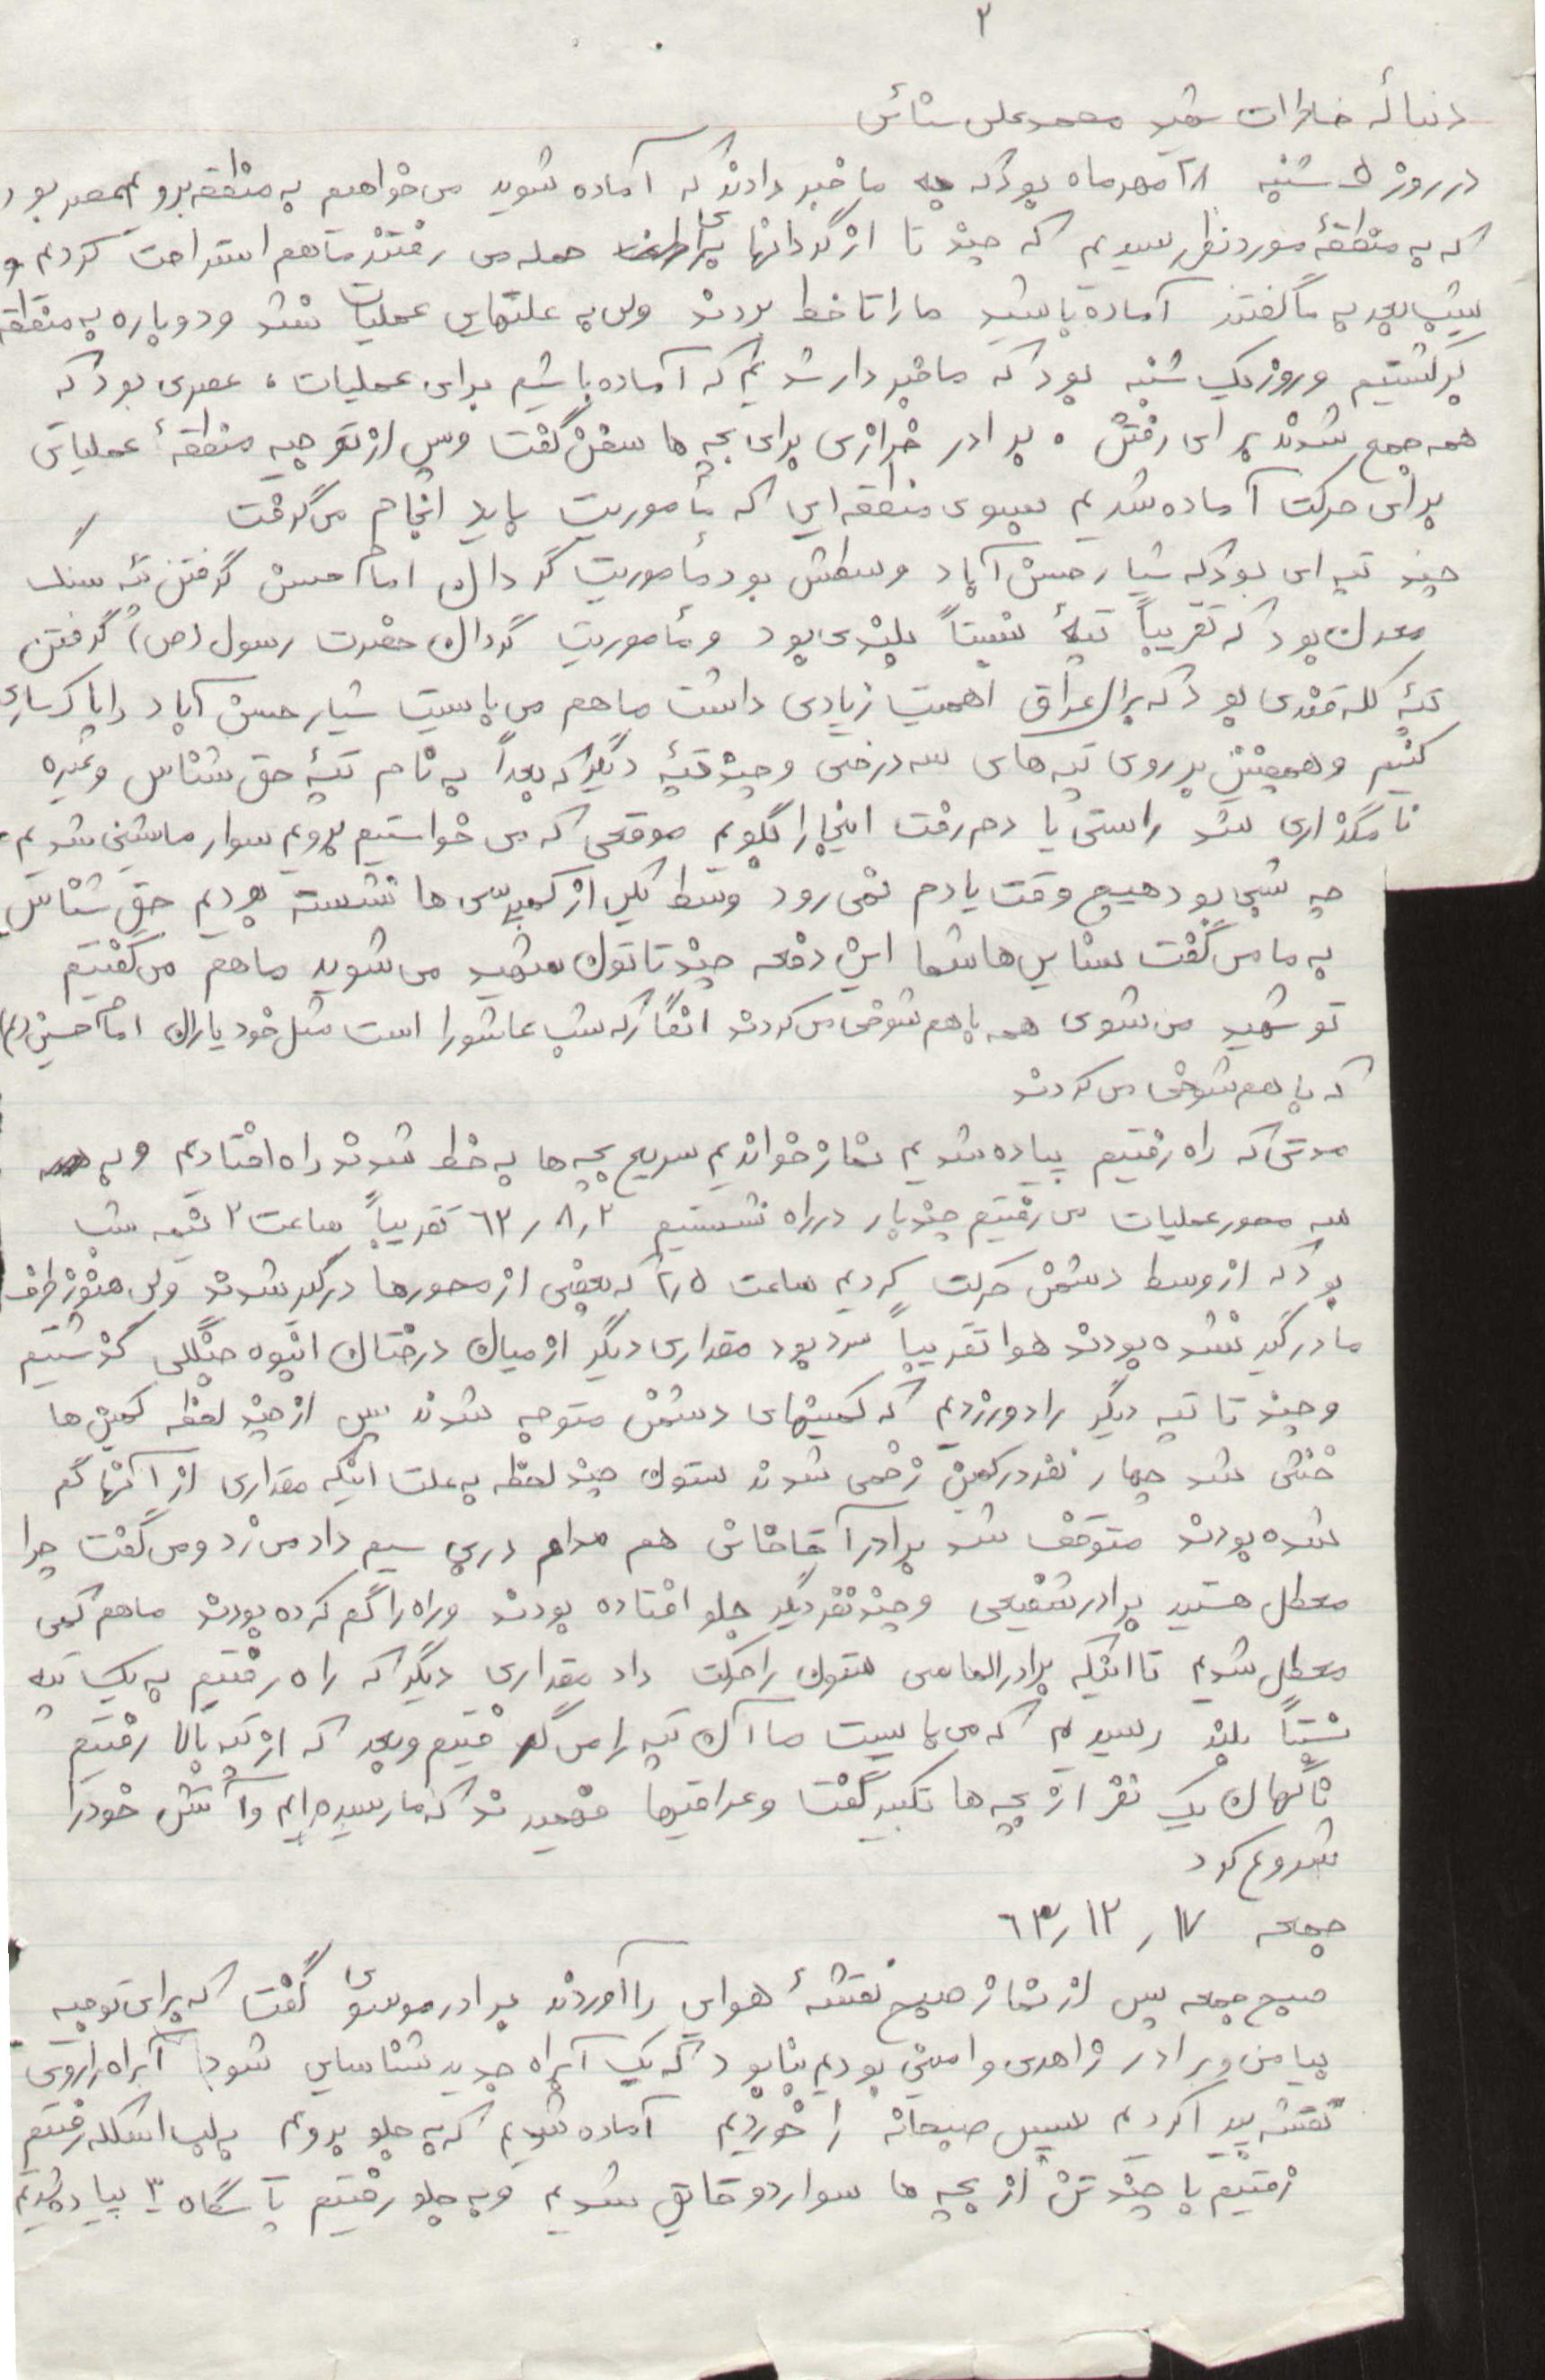 ۲
دنبالهٔ خاطرات شهید محمدعلی ستائی
در روز ۵ شنبه ۲۸ مهرماه بود که به ما خبر دادند که آماده شوید می خواهیم به منطقه برویم عصر بود
که به منطقهٔ مورد نظر رسیدیم که چند تا از گردانها برای حمله می رفتند ما هم استراحت کردیم و
شب بعد به ما گفتند آماده باشید ما را تا خط بردند ولی به علتهایی عملیات نشد و دوباره به منطقه
برگشتیم و روز یک شنبه بود که ما خبردار شدیم که آماده باشیم برای عملیات ، عصری بود که
همه جمع شدند برای رفتن . برادر خرازی برای بچه ها سخن گفت و پس از توجیه منطقهٔ عملیاتی
برای حرکت آماده شدیم بسوی منطقه ایی که مأموریت باید انجام می گرفت
چند تپه ای بود که شیار حسن آباد وسطش بود مأموریت گردان امام حسن گرفتن تپه سنگ
معدن بود که تقریباً تپهٔ نسبتاً بلندی بود و مأموریت گردان حضرت رسول (ص) گرفتن
تپهٔ کله قندی بود که برای عراق اهمیت زیادی داشت ما هم می بایست شیار حسن آباد را پاکسازی
کنیم و همچنین بر روی تپه های سه درختی و چند تپهٔ دیگر که بعداً به نام تپهٔ حق شناس و غیره
نامگذاری شد راستی یادم رفت اینجا را بگویم موقعی که می خواستیم برویم سوار ماشین شدیم.
چه شبی بود هیچ وقت یادم نمی رود وسط یکی از کمپرسی ها نشسته بودیم حق شناس
به ما می گفت عباس ها شما این دفعه چند تاتون شهید می شوید ما هم می گفتیم
تو شهید می شوی همه با هم شوخی می کردند انگار که شب عاشورا است مثل خود یاران امام حسین (ع)
که با هم شوخی می کردند
مدتی که راه رفتیم پیاده شدیم نماز خواندیم سریع بچه ها به خط شدند راه افتادیم و به
سه محور عملیات می رفتیم چند بار در راه نشستیم ۶۲٫۸٫۲ تقریباً ساعت ۲ نیمه شب
بود که از وسط دشمن حرکت کردیم ساعت ۲٫۵ که بعضی از محورها درگیر شدند ولی هنوز طرف
ما درگیر نشده بودند هوا تقریباً سرد بود مقداری دیگر از میان درختان انبوه جنگلی گذشتیم
و چند تا تپه دیگر را دور زدیم که کمینهای دشمن متوجه شدند پس از چند لحظه کمین ها
خنثی شد چهار نفر در کمین زخمی شدند ستون چند لحظه به علت اینکه مقداری از آنها گم
شده بودند متوقف شد برادر آقاخانی هم مدام در بی سیم داد می زد و می گفت چرا
معطل هستید برادر شفیعی و چند نفر دیگر جلو افتاده بودند و راه را گم کرده بودند ما هم کمی
معطل شدیم تا اینکه برادر الماسی ستون را حرکت داد مقداری دیگر که راه رفتیم به یک تپه
نسبتاً بلند رسیدیم که می بایست ما آن تپه را می گرفتیم و بعد که از تپه بالا رفتیم
ناگهان یک نفر از بچه ها تکبیر گفت و عراقیها فهمیدند که ما رسیده ایم و آتش خود را
شروع کرد
جمعه ۶۳٫۱۲٫۱۷
صبح جمعه پس از نماز صبح نقشهٔ هوایی را آوردند برادر موسوی گفت که برای توجیه
بیا من و برادر زاهدی و امینی بودیم بنا بود که یک آبراه جدید شناسایی شود آبراه را روی
نقشه پیدا کردیم سپس صبحانه را خوردیم آماده شدیم که به جلو برویم به لب اسکله رفتیم
رفتیم با چند تن از بچه ها سوار دو قایق شدیم و به جلو رفتیم پاسگاه ۳ پیاده شدیم